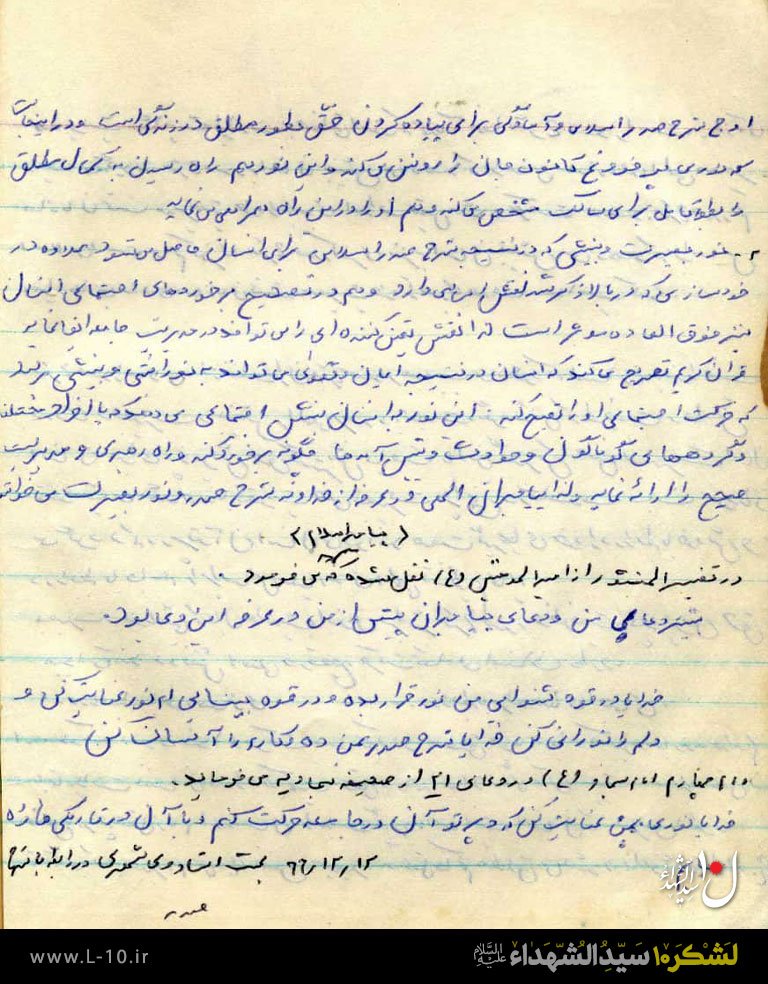 اوج شرح صدر اسلامی و آمادگی برای پیاده کردن حق بطور مطلق در زندگی است و در اینجاست
که نوری پر فروغ کانون جان را روشن می‌کند و این نور هم راه رسیدن به کمال مطلق
را بطور کامل برای سالک مشخص می‌کند و هم او را در این راه همراهی می‌نماید
۲- نور بصیرت و بینشی که در نتیجه شرح صدر اسلامی برای انسان حاصل می‌شود علاوه در
خودسازی که در بالا ذکر شد نقش اساسی دارد و هم در تصحیح برخوردهای اجتماعی انسان
نیز فوق العاده موثر است که نقش تعیین کننده ای را می‌تواند در مدیریت جامعه ایفا نماید
قرآن کریم تصریح می‌کند که انسان در نتیجه ایمان و تقوای می‌تواند به نورانیتی و بینشی برسد
که حرکت اجتماعی او را تصحیح کند. این نور به انسان بینش اجتماعی می‌دهد که با افراد مختلف
و گروههای گوناگون و حوادث و پیش آمدها چگونه برخورد کند و راه رهبری و مدیریت
صحیح را ارائه نماید و لذا پیامبران الهی در عرفه از خداوند شرح صدر و نور بصیرت می‌خواستند
(پیامبر اسلام)
در تفسیر المنثور از امیرالمومنین (ع) نقل شده که می فرمود
بیشتر دعای من و دعای پیامبران پیش از من در عرفه این دعا بود.
خدایا در قوه شنوایی من نور قرار بده و در قوه بینایی ام نور عنایت کن و
دلم را نورانی کن خدایا شرح صدر بمن ده و کارم را آسان کن
امام چهارم امام سجاد (ع) در دعای ۲۱ از صحیفه سجادیه می فرماید.
خدایا نوری بمن عنایت کن که در پرتو آن در جامعه حرکت کنم و با آن در تاریکی ها راه
۶۶/۱۲/۱۲ بحث استاد ری شهری در رابطه با شرح
صدر
ل۱۰ سیدالشهداء
www.L-10.ir
لَشکَر۱۰ سَیِّدُالشُّهَداءِ عَلَیهِ السَّلام